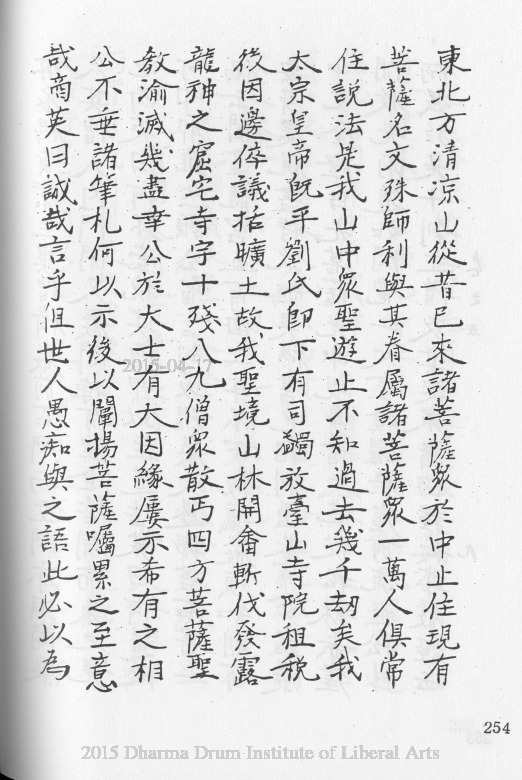 東北方清凉山從昔已來諸菩薩眾於中止住現有
菩薩名文殊師利與其眷屬諸菩薩眾一萬人俱常
住說法是我山中眾聖遊止不知過去幾千劫矣我
太宗皇帝旣平劉氏卽下有司蠲放臺山寺院租稅
後因邊倅議括曠土故我聖境山林開畬斬伐發露
龍神之窟宅寺宇十殘八九僧眾散丐四方菩薩聖
教渝滅幾盡幸公於大士有大因緣屢示希有之相
公不垂諸筆札何以示後以闡揚菩薩囑累之至意
哉商英曰誠哉言乎但世人愚痴與之語此必以為
254
2015-04-17
2015 Dharma Drum Institute of Liberal Arts